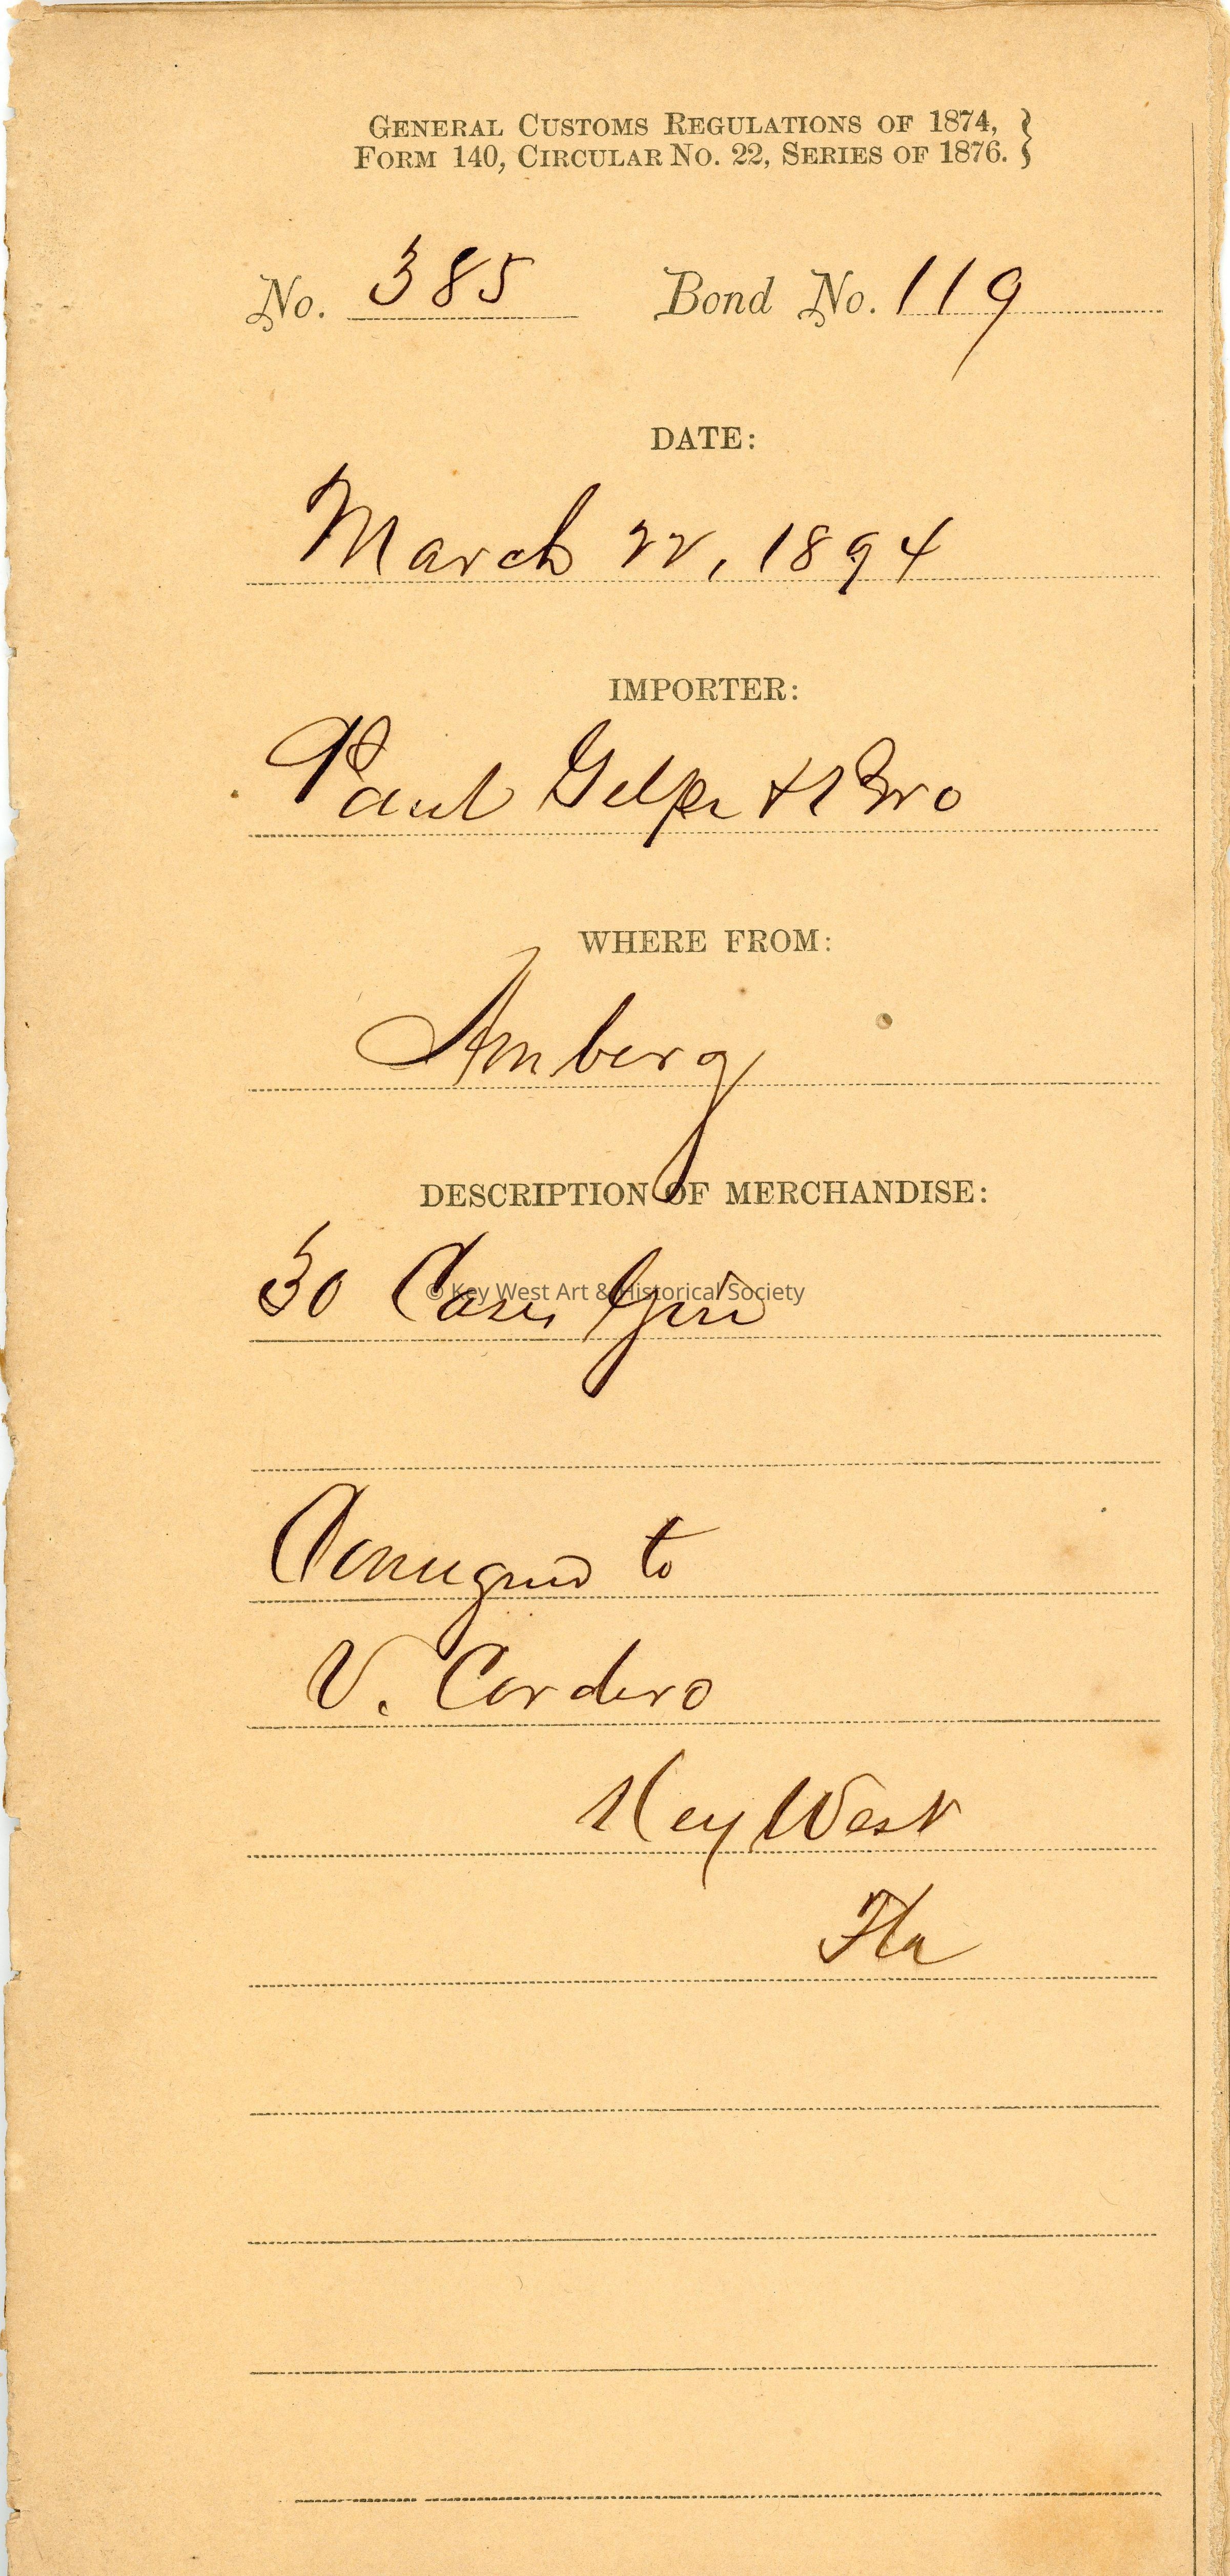 GENERAL CUSTOMS REGULATIONS OF 1874,
FORM 140, CIRCULAR NO. 22, SERIES OF 1876.
No. 385 Bond No. 119
DATE:
March 22, 1894
IMPORTER:
Paul Gelpi & Bro
WHERE FROM:
Amberg
DESCRIPTION OF MERCHANDISE:
30 Cases Gin
© Key West Art & Historical Society
Consigned to
V. Cordero
Key West
Fla